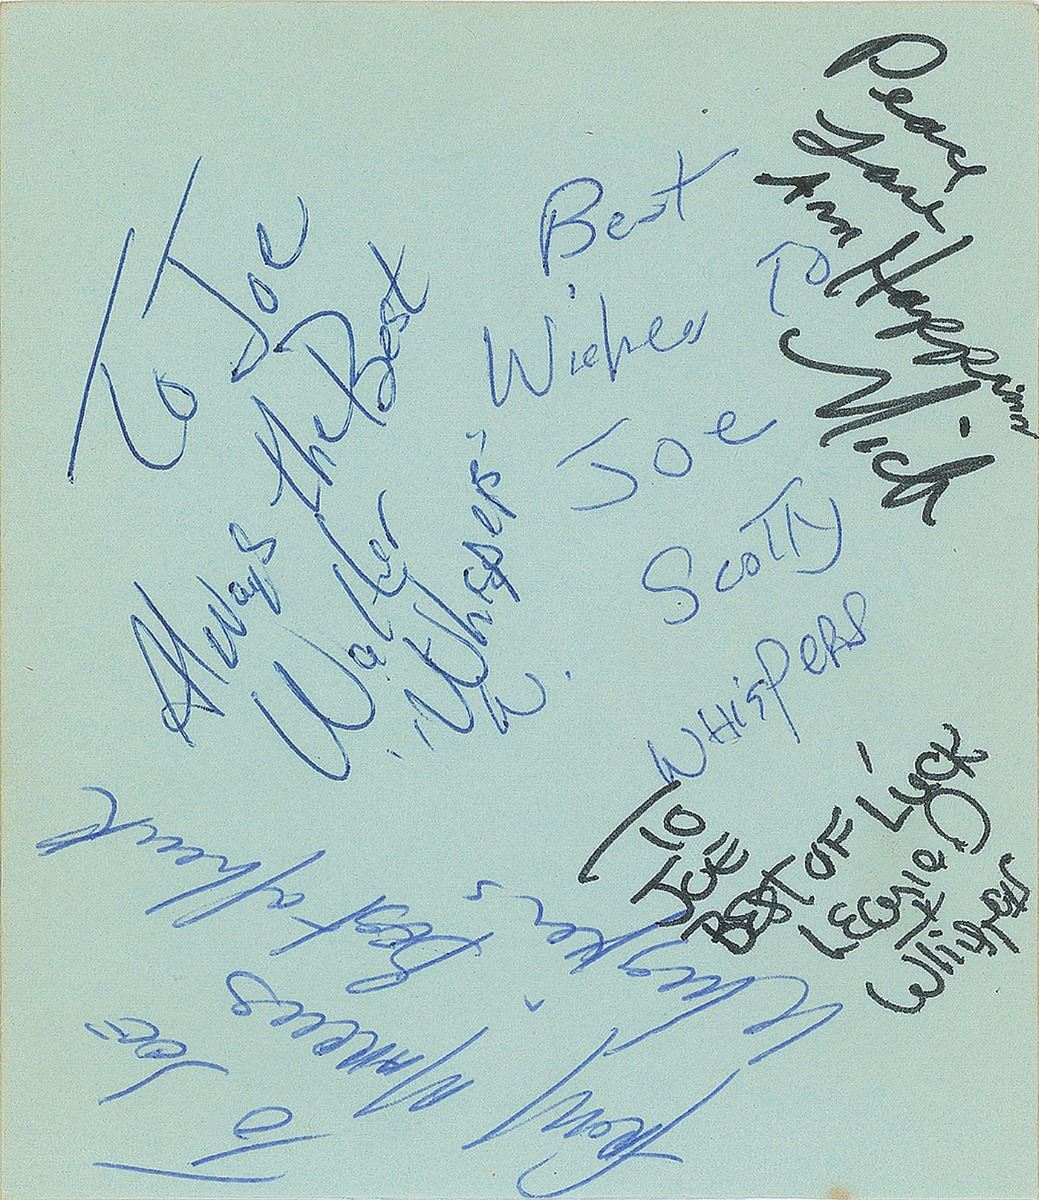 To Joe
Always the Best
Walter
"Whispers"
W.
Best
Wishes To
Joe
Scotty
Whispers
Peace
Love
Ann Happiness
Nick
To
JOE
BEST OF LUCK
Whispers
To Joe
Marcus
Best
Whisper's